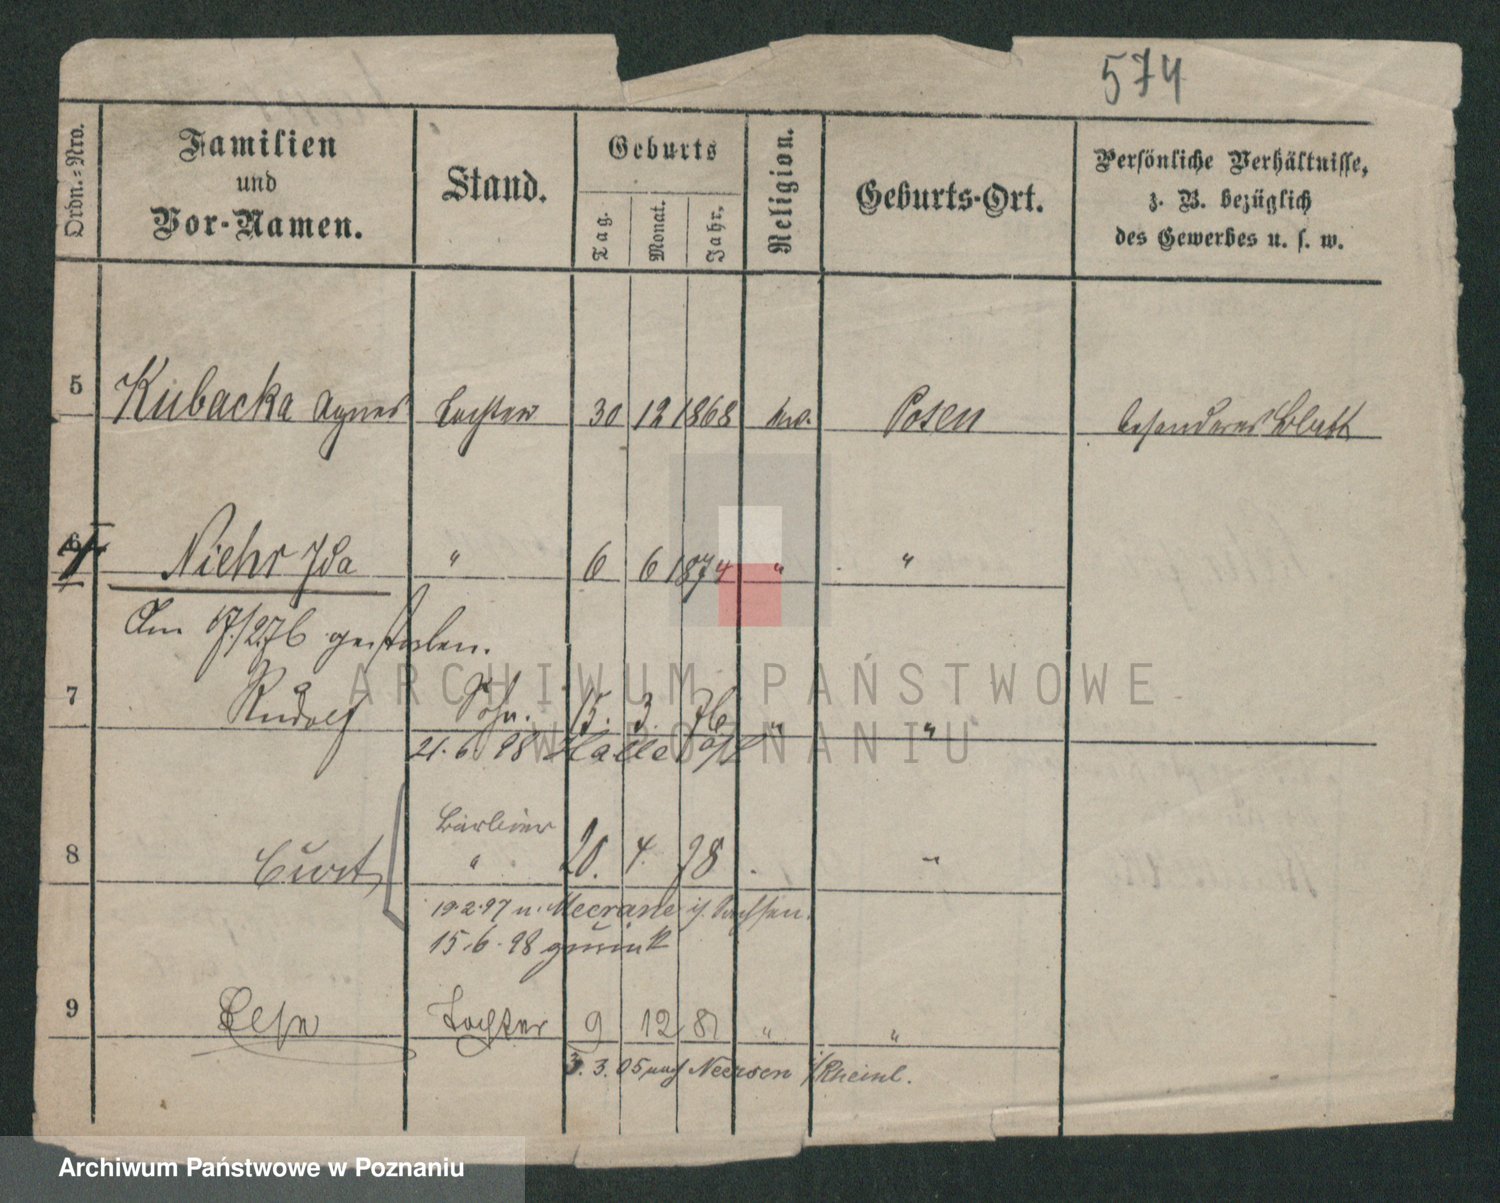 574
Ordn.-Nro.
Familien
und
Vor-Namen.
Stand.
Geburts
Tag.
Monat.
Jahr.
Religion.
Geburts-Ort.
Persönliche Verhältnisse,
z. B. bezüglich
des Gewerbes u. s. w.
5 Kubacka Agnes Tochter 30 12 1868 Posen besonderes Blatt
6 Niehr Ida " 6 6 1874 " "
Am 17/2 76 gestorben.
7 Rudolf Sohn. 15. 3. 76 " "
21. 6. 98 Halle
Barbier
8 Curt " 20. 4. 78 "
19.2.97 n. Meerane i/ Sachsen.
15.6.98 zurück
9 Tochter 9 12 81 " "
3. 3. 05 nach Neersen i/Rheinl.
ARCHIWUM PAŃSTWOWE
W POZNANIU
Archiwum Państwowe w Poznaniu